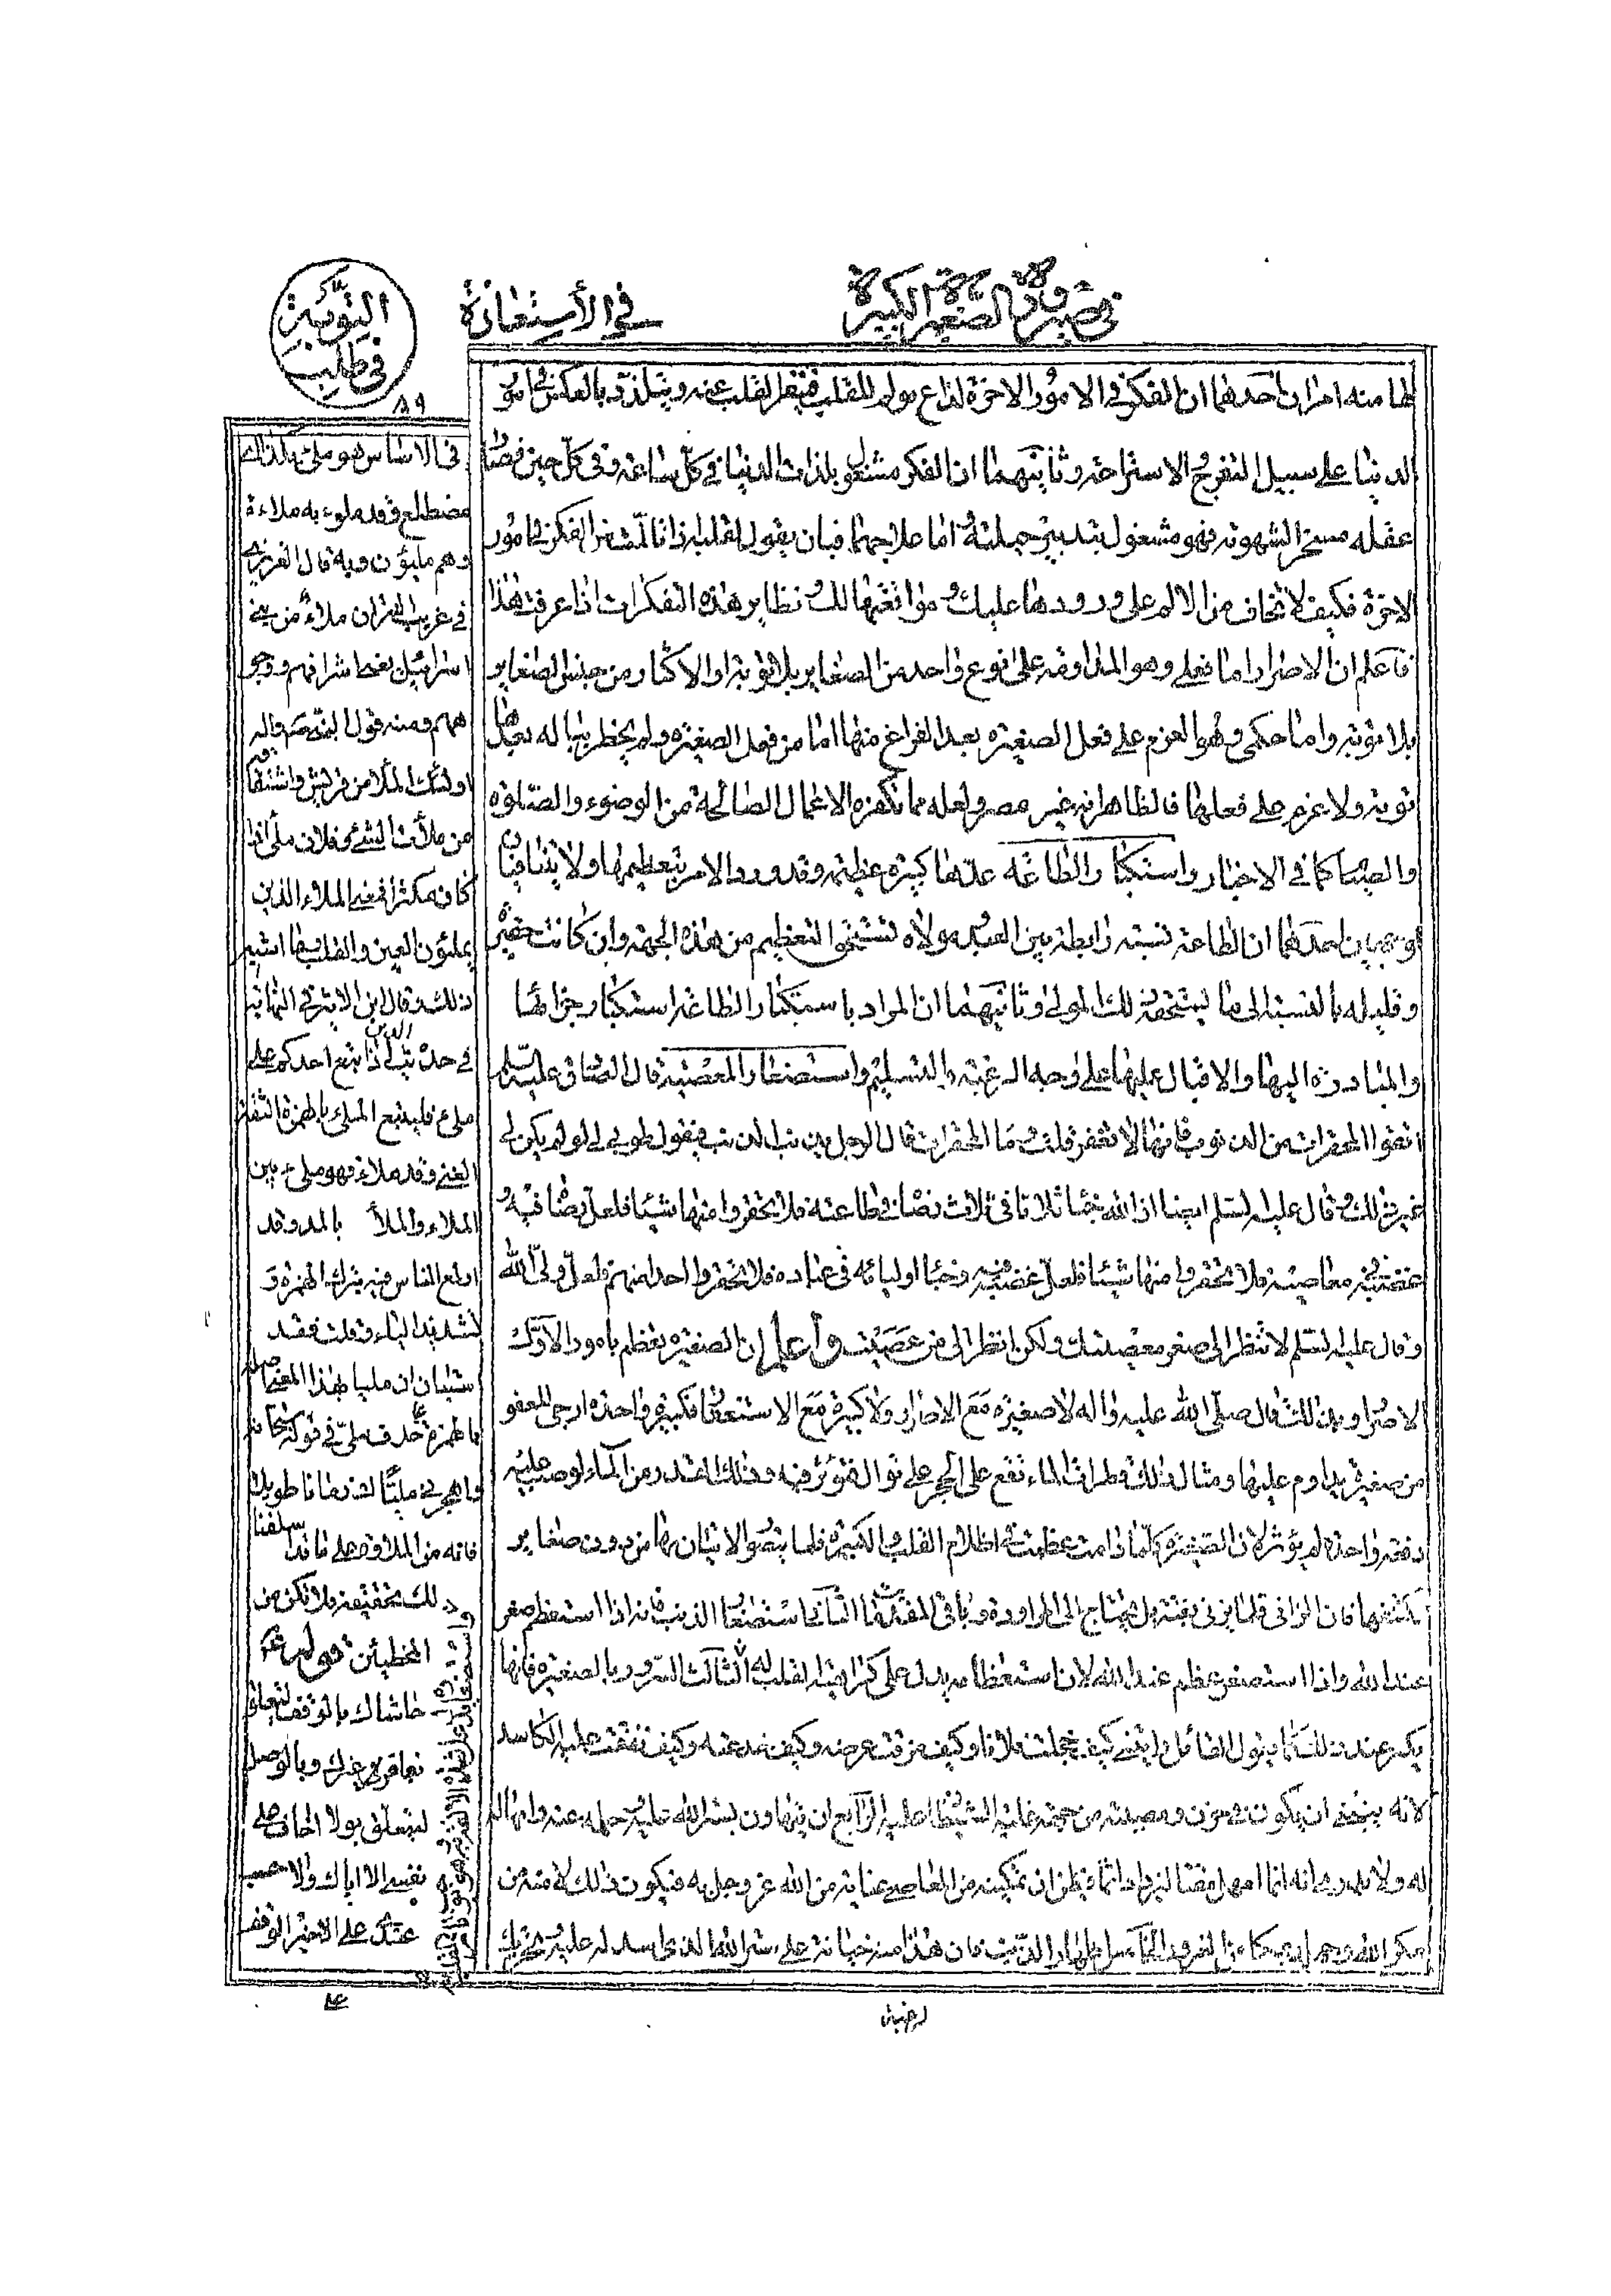 في صيرورة الصغيرة الكبيرة
في الأستعاذة
التوبة
في طلب
لها منه امران احدهما ان الفكر في الامور الاخرة لذاع مولم للقلب فينفر القلب عنه ويتلذذ بالفكر في امور
الدنيا على سبيل التفرج والاستراحة وثانيهما ان الفكر مشغول بلذات الدنيا في كل ساعة وفي كل حين فصار
عقله مسخر الشهوته فهو مشغول بتدبير حيلته اما علاجهما فبان يقول لقلبه اذا تالمت من الفكر في امور
الاخرة فكيف لا تخاف من الالم على ورودها عليك ومواقعتها لك ونظاير هذه التفكرات اذا عرفت هذا
فاعلم ان الاصرار اما فعلي وهو المداومة على نوع واحد من الصغاير بلا توبة او الاكثار من جنس الصغاير
بلا توبة واما حكمي وهو العزم على فعل الصغيرة بعد الفراغ منها اما من فعل الصغيرة ولم يخطر بباله بعدها
توبة ولا عزم على فعلها فالظاهر انه غير مصر ولعله مما تكفره الاعمال الصالحة من الوضوء والصلوة
والصيام كما في الاخبار واستكبار الطاعة عدها كبيرة عظيمة وقد ورد الامر بتعظيمها ولا يتنافيان
لوجهين احدهما ان الطاعة نسبة رابطة بين العبد ومولاه تستحق التعظيم من هذه الجهة وان كانت حقيرة
وقليله بالنسبة الى ما يستحقه ذلك المولى وثانيهما ان المراد باستكبار الطاعة استكبار جزائها
والمبادرة اليها والاقبال عليها على وجه الرغبة والتسليم واستصغار المعصية قال الصادق عليه السلم
اتقوا المحقرات من الذنوب فانها لا تغفر قلت وما المحقرات قال الرجل يذنب الذنب فيقول طوبى لي لو لم يكن لي
غير ذلك وقال عليه السلم ايضا ان الله خبأ ثلاثا في ثلاث رضاه في طاعته فلا تحقروا منها شيئا فلعل رضاه فيه و
غضبه في معاصيه فلا تحقروا منها شيئا فلعل غضبه فيه وخبا اوليائه في عباده فلا تحقروا احدا منهم فلعله ولي الله
وقال عليه السلم لا تنظر الى صغر معصيتك ولكن انظر الى من عصيت واعلم ان الصغيرة تعظم بامور الاول
الاصرار وبذلك قال صلى الله عليه واله لا صغيرة مع الاصرار ولا كبيرة مع الاستغفار فكبيرة واحدة ارجى للعفو
من صغيرة يداوم عليها ومثال ذلك قطرات الماء تقع على الحجر على توال فتؤثر فيه وذلك القدر من الماء لو صب عليه
دفعة واحدة لم يؤثر لان الصغيرة كلما دامت عظمت في اظلام القلب والكبيرة فلما يتصور الاتيان بها من دون صغاير
تكتنفها فان الزاني قلما يزني بغتة بل يحتاج الى المراودة وباقي المقدمات الثاني استصغار الذنب فانه اذا استعظم صغر
عند الله واذا استصغر عظم عند الله لان استعظامه يدل على كراهية القلب له الثالث السرور بالصغيرة فانها
يكبر عند ذلك كما يقول القائل كيف خجلت فلانا وكيف مزقت عرضه وكيف خدعته وكيف نفقت عليه الكاسد
لانه ينبغي ان يكون في حزن ومصيبة من جهة غلبة الشيطان عليه الرابع ان يتهاون بستر الله عليه وحمله عنه وامهاله
له ولا يدري انه انما امهل مقتا ليزداد اثما فيظن ان تمكينه من المعاصي عناية من الله عز وجل به فيكون ذلك لامنه من
مكر الله الخامس اظهار الذنب فان هذا منه خيانة على ستر الله الذي اسدله عليه وتحريك
في الاساس هو ملئ بكذا
مضطلع وقد ملؤ به ملاءة
وهم مليؤن وبه قال العزيزي
في غريب القران ملاء من بني
اسرائيل يعني اشرافهم ووجو
ههم ومنه قول النبي ص واله
اولئك الملا من قريش واشتقاقه
من ملأت الشئ وفلان ملئ اذا
كان مكثرا فمعنى الملاء الذين
يملئون العين والقلب وما اشبه
ذلك وقال ابن الاثير في النهاية
في حديث الدين اذا اتبع احدكم على
ملئ فليتبع الملئ بالهمزة الثقة
الغني وقد ملاء فهو ملئ بين
الملاء والملأ بالمد وقد
اولع الناس فيه بترك الهمزة و
تشديد الياء وقلت فقد
ستبان ان مليا بهذا المعنى اصله
بالهمزة بخلاف ملي في قوله تعالى
واهجرني مليا اي زمانا طويلا
فانه من الملاوة على ما اسلفنا
ذلك تحقيقه فلا تكن من
المخطئين قوله ع
حاشاك بالوقف
وبالوصل
لتعلقه بولا اخاف على
نفسي الا اياك ولا
عندك على الاخير الوقف